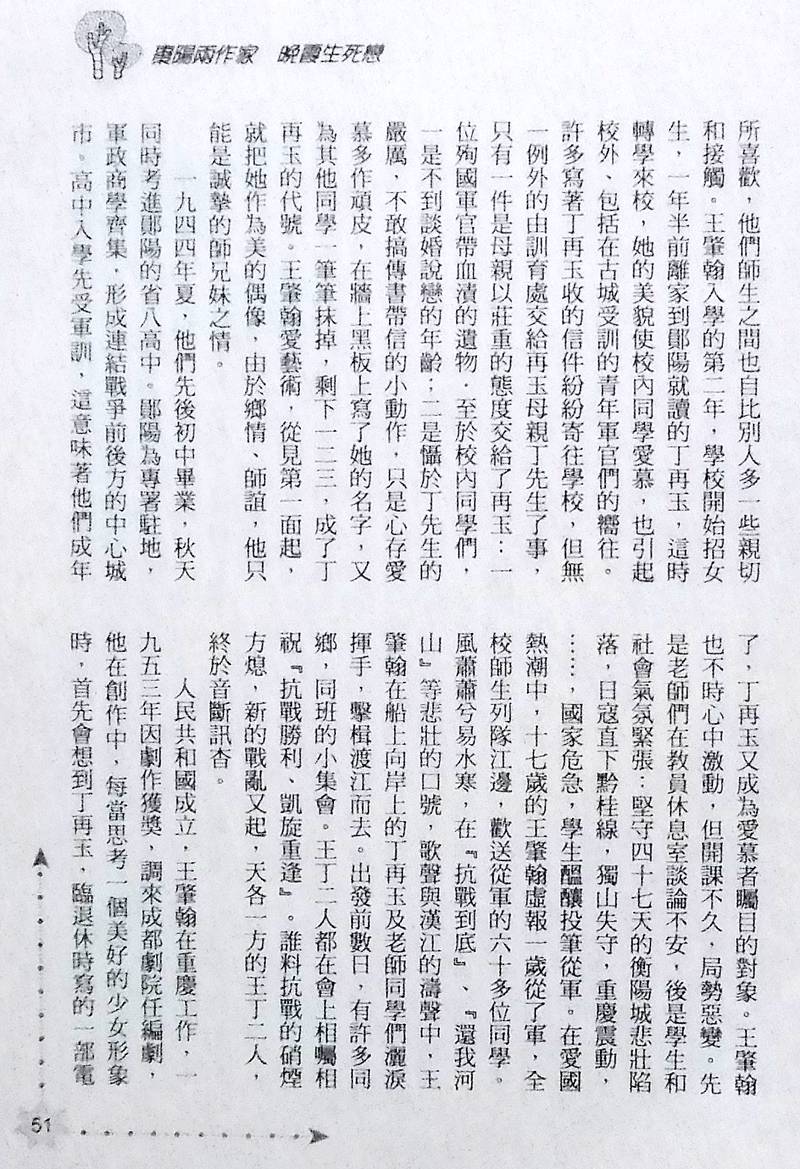 棗陽兩作家　晚霞生死戀
所喜歡，他們師生之間也自比別人多一些親切
和接觸。王肇翰入學的第二年，學校開始招女
生，一年半前離家到鄖陽就讀的丁再玉，這時
轉學來校，她的美貌使校內同學愛慕，也引起
校外、包括在古城受訓的青年軍官們的嚮往。
許多寫著丁再玉收的信件紛紛寄往學校，但無
一例外的由訓育處交給再玉母親丁先生了事，
只有一件是母親以莊重的態度交給了再玉：一
位殉國軍官帶血漬的遺物．至於校內同學們，
一是不到談婚說戀的年齡；二是懾於丁先生的
嚴厲，不敢搞傳書帶信的小動作，只是心存愛
慕多作頑皮，在牆上黑板上寫了她的名字，又
為其他同學一筆筆抹掉，剩下一二三，成了丁
再玉的代號。王肇翰愛藝術，從見第一面起，
就把她作為美的偶像，由於鄉情、師誼，他只
能是誠摯的師兄妹之情。
一九四四年夏，他們先後初中畢業，秋天
同時考進鄖陽的省八高中。鄖陽為專署駐地，
軍政商學齊集，形成連結戰爭前後方的中心城
市。高中入學先受軍訓，這意味著他們成年
了，丁再玉又成為愛慕者矚目的對象。王肇翰
也不時心中激動，但開課不久，局勢惡變。先
是老師們在教員休息室談論不安，後是學生和
社會氣氛緊張：堅守四十七天的衡陽城悲壯陷
落，日寇直下黔桂線，獨山失守，重慶震動，
……，國家危急，學生醞釀投筆從軍。在愛國
熱潮中，十七歲的王肇翰虛報一歲從了軍，全
校師生列隊江邊，歡送從軍的六十多位同學。
風蕭蕭兮易水寒，在『抗戰到底』、『還我河
山』等悲壯的口號，歌聲與漢江的濤聲中，王
肇翰在船上向岸上的丁再玉及老師同學們灑淚
揮手，擊楫渡江而去。出發前數日，有許多同
鄉，同班的小集會。王丁二人都在會上相囑相
祝『抗戰勝利、凱旋重逢』。誰料抗戰的硝煙
方熄，新的戰亂又起，天各一方的王丁二人，
終於音斷訊杳。
人民共和國成立，王肇翰在重慶工作，一
九五三年因劇作獲獎，調來成都劇院任編劇，
他在創作中，每當思考一個美好的少女形象
時，首先會想到丁再玉，臨退休時寫的一部電
51